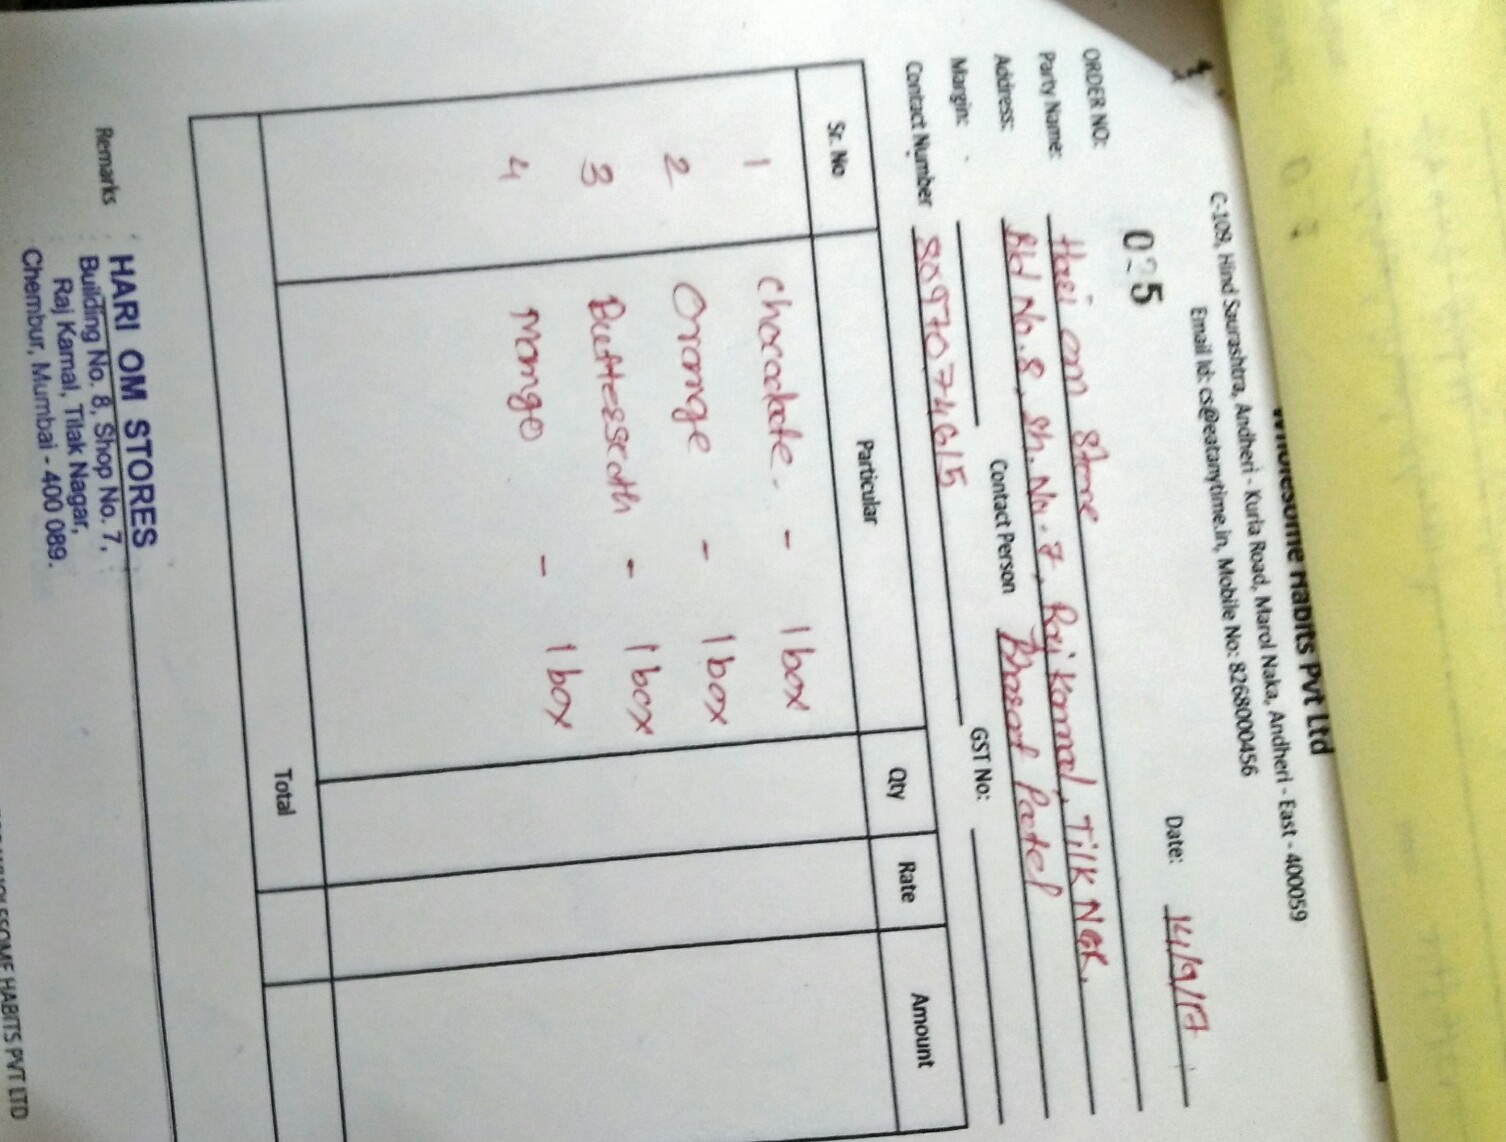 Wholesome Habits Pvt Ltd
C-109, Hind Saurashtra, Andheri - Kurla Road, Marol Naka, Andheri - East - 400059
Email Id: cs@eatanytime.in, Mobile No: 8268000456
ORDER NO: 025 Date: 14/9/17
Party Name: Hari om Store
Address: Bld No. 8, Sh. No. 7, Raj Kamal, Tilk NGR.
Margin: Contact Person Bharat Patel
Contact Number 8097074615 GST No:
Sr. No Particular Qty Rate Amount
1 chocolate. - 1 box
2 Orange - 1 box
3 - 1 box
4 Mango - 1 box
Total
Remarks : HARI OM STORES
Building No. 8, Shop No. 7,
Raj Kamal, Tilak Nagar,
Chembur, Mumbai - 400 089.
WHOLESOME HABITS PVT LTD